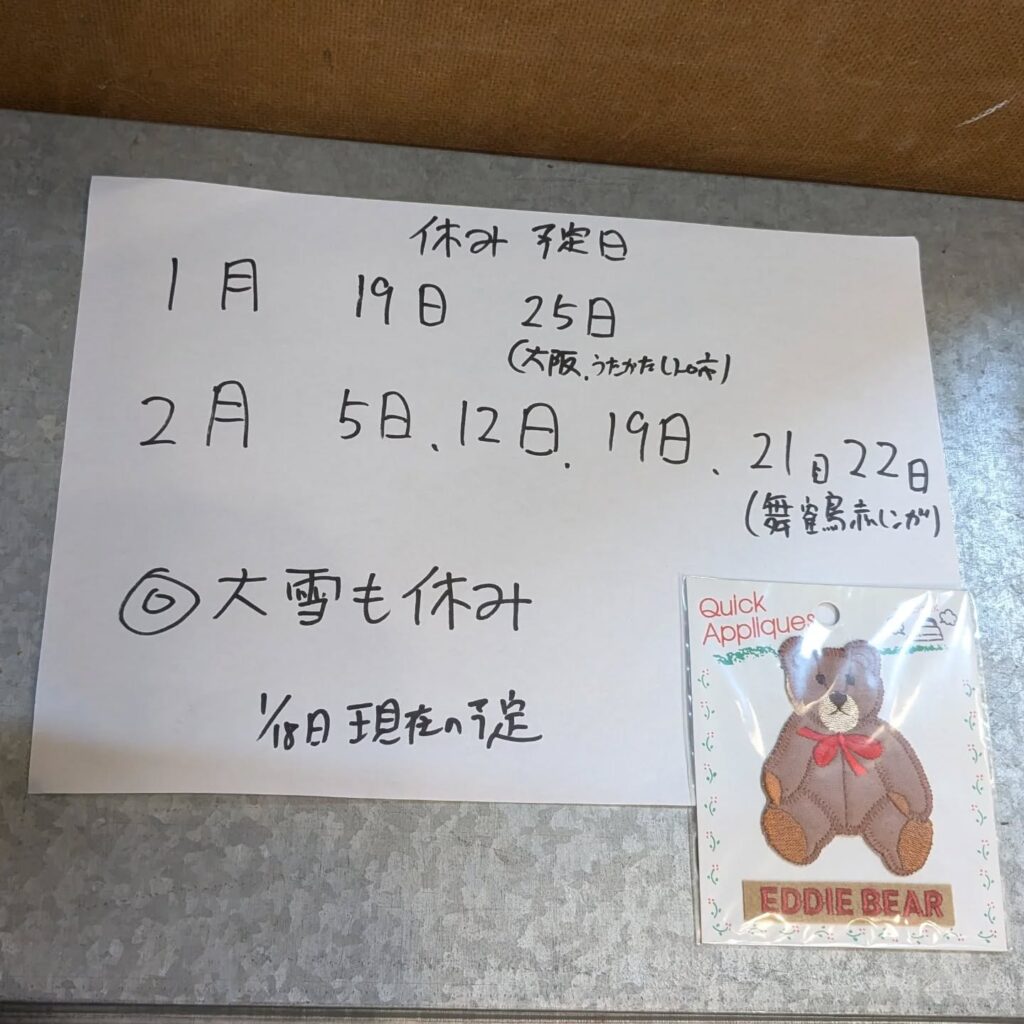 休み 予定日
1月 19日 25日
(大阪、うたかたレトロ市)
2月 5日、12日、19日、21日22日
(舞鶴赤レンガ)
◎大雪も休み
1/18日 現在の予定
Quick
Appliques
EDDIE BEAR